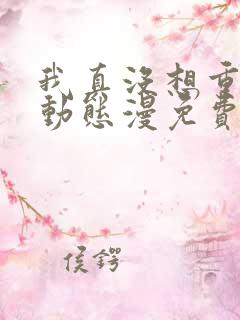 我真没想重
動態漫免費
侯鍔